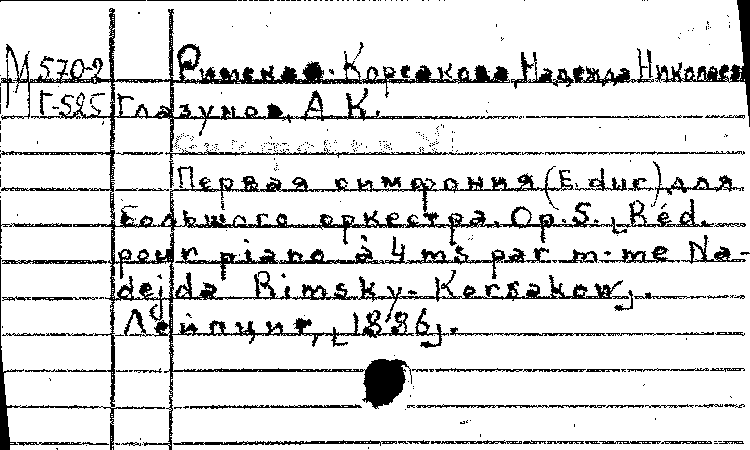 М 570-2 Римская-Корсакова, Надежда Николаев
Г-525 Глазунов, А. К.
Симфония №1
Первая симфония (E. dur) для
большого оркестра. Op. 5. [Réd.
pour piano à 4 ms par m-me Na-
dejda Rimsky-Korsakow].
Лейпциг, [1886].